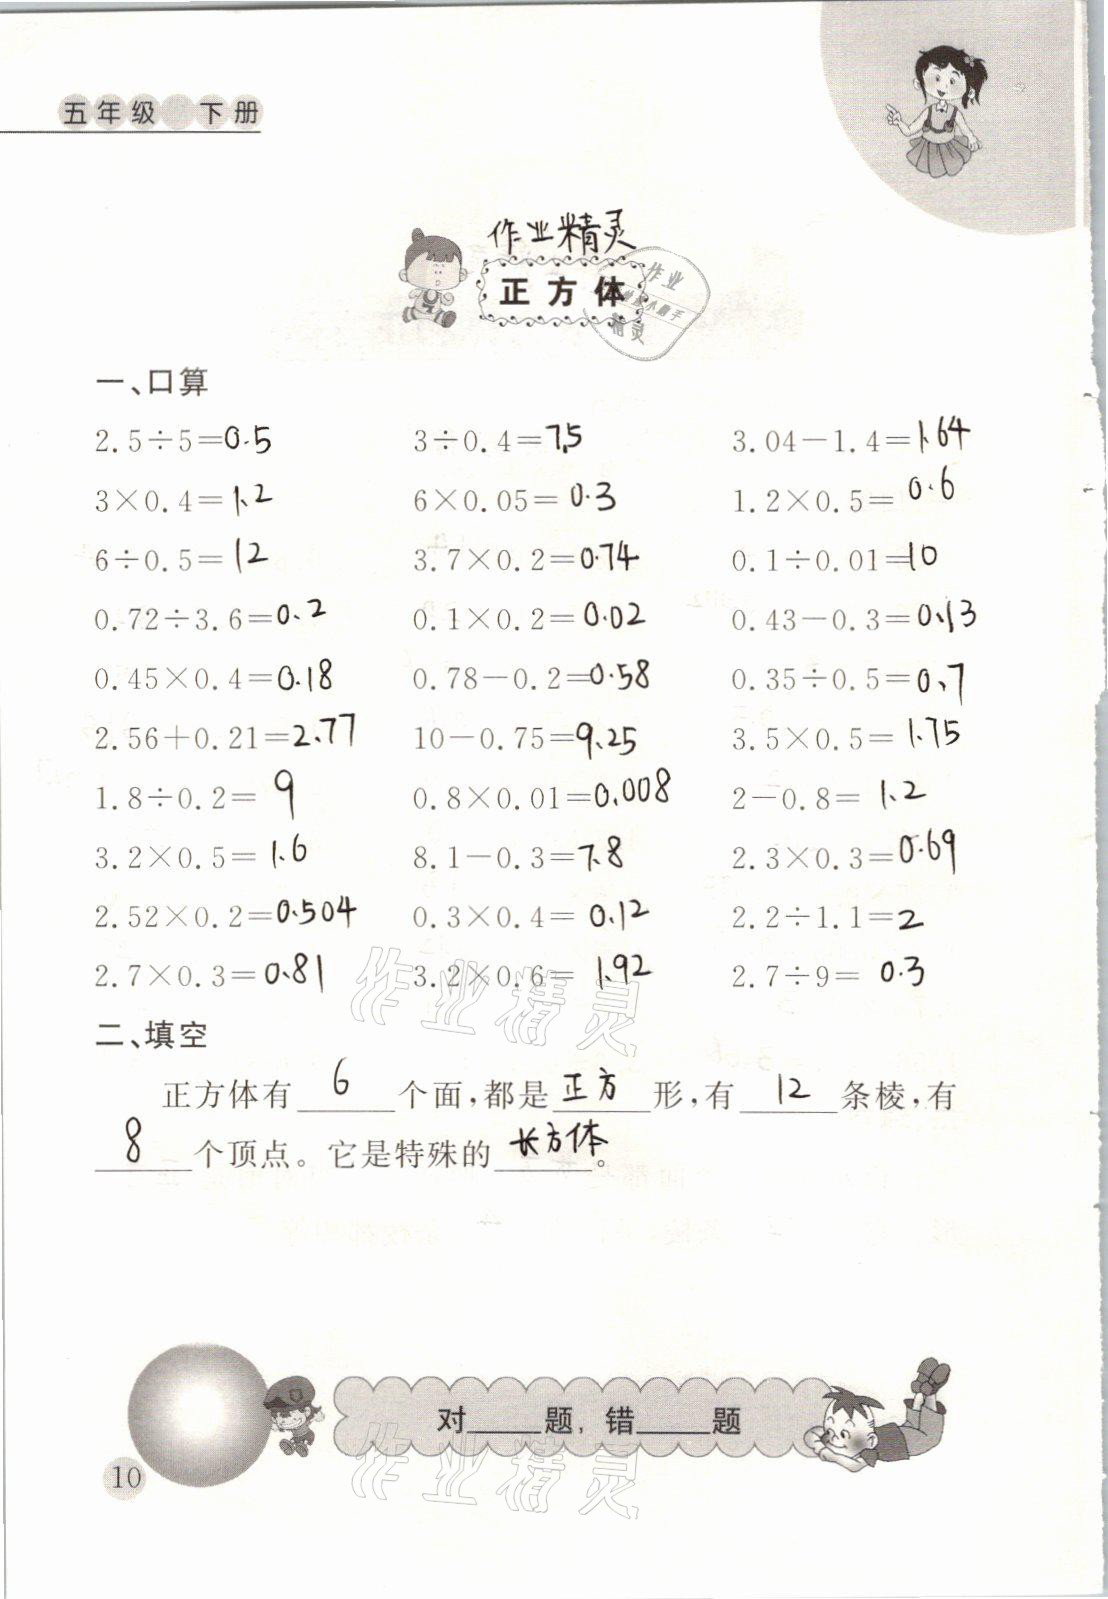 五年级 下册
作业精灵
正方体
作业
精灵
一、口算
2.5÷5=0.5 3÷0.4=7.5 3.04-1.4=1.64
3×0.4=1.2 6×0.05=0.3 1.2×0.5=0.6
6÷0.5=12 3.7×0.2=0.74 0.1÷0.01=10
0.72÷3.6=0.2 0.1×0.2=0.02 0.43-0.3=0.13
0.45×0.4=0.18 0.78-0.2=0.58 0.35÷0.5=0.7
2.56+0.21=2.77 10-0.75=9.25 3.5×0.5=1.75
1.8÷0.2=9 0.8×0.01=0.008 2-0.8=1.2
3.2×0.5=1.6 8.1-0.3=7.8 2.3×0.3=0.69
2.52×0.2=0.504 0.3×0.4=0.12 2.2÷1.1=2
2.7×0.3=0.81 3.2×0.6=1.92 2.7÷9=0.3
作业精灵
二、填空
正方体有 6 个面,都是 正方 形,有 12 条棱,有
8 个顶点。它是特殊的 长方体 。
对____题,错____题
作业精灵
10